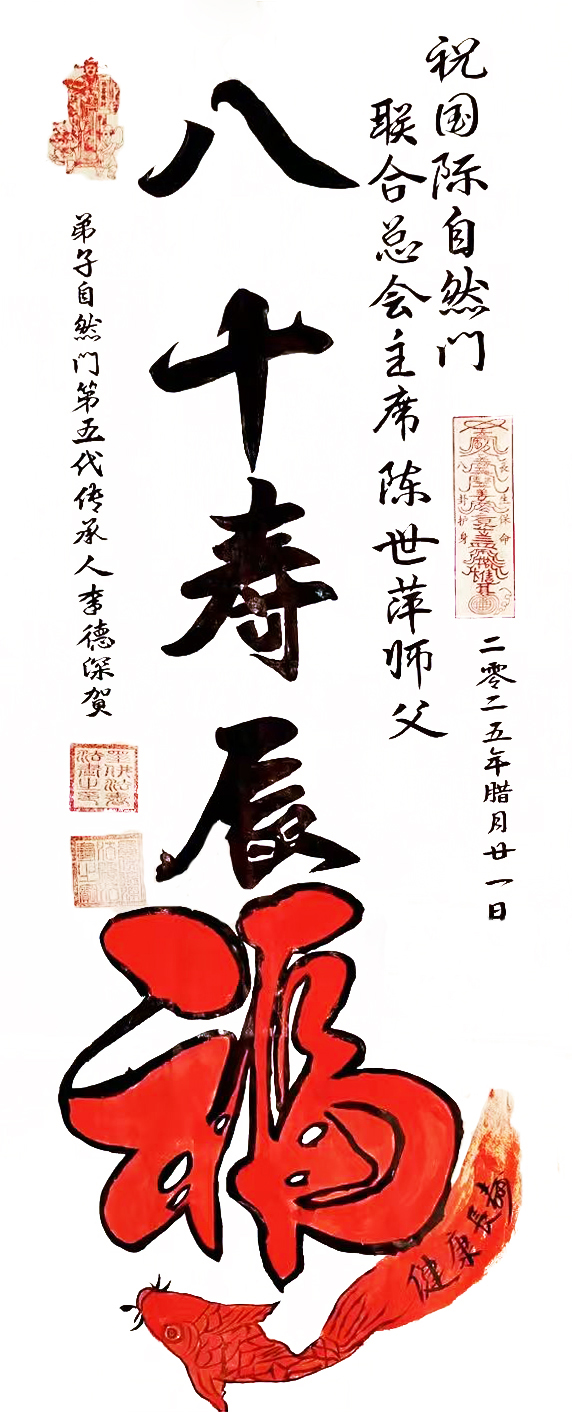 祝国际自然门
联合总会主席陈世萍师父
八十寿辰
福
弟子自然门第五代传承人李德深贺
二零二五年腊月廿一日
长生保命
八卦护身
健康長寿